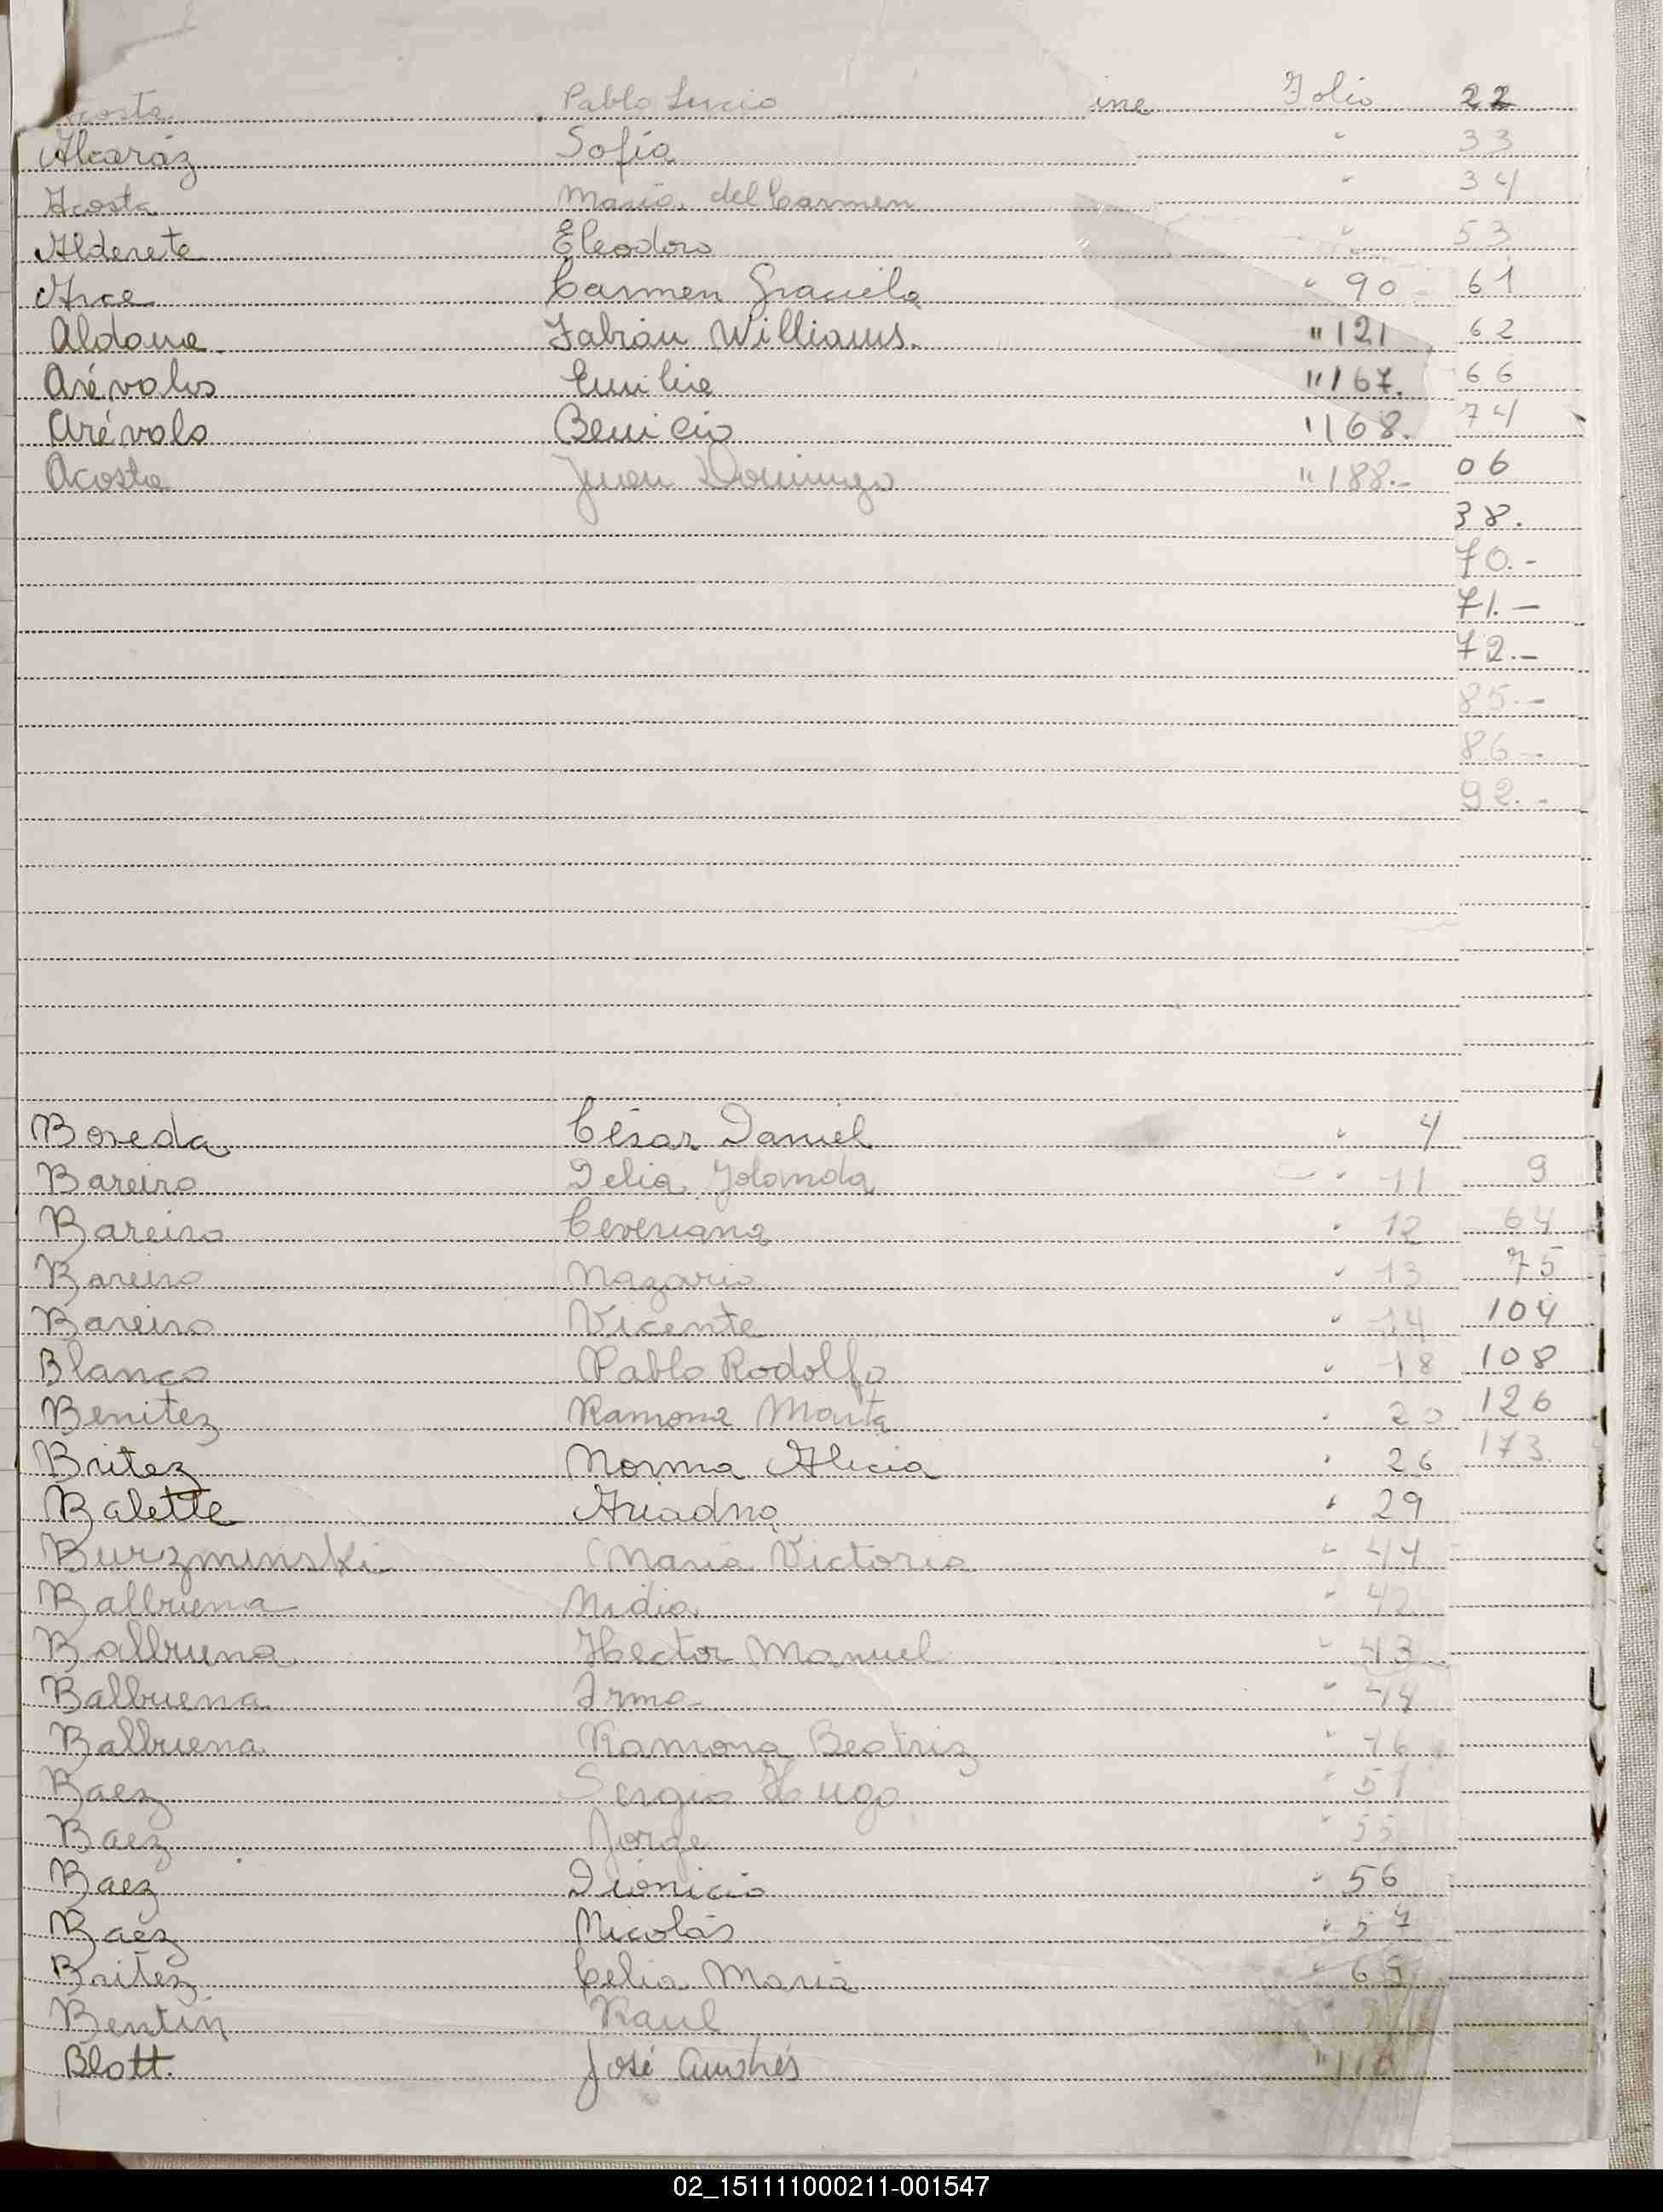 costa Pablo Lucio ine Folio 22
Alcaráz Sofía " 33
Acosta María del Carmen " 34
Alderete Eleodoro " 53
Arce Carmen Graciela " 90 61
Aldana Fabián Williams. " 121 62
Arévalos Emilia " 167. 66
Arévalo Benicio " 168. 74
Acosta Juan Domingo " 188.- 06
38.
70.-
71.-
72.-
85.-
86.-
92.-
Boveda César Daniel " 4
Bareiro Delia Yolanda " 11 9
Bareiro Ceveriana " 12 64
Bareiro Nazario " 13 75
Bareiro Vicente " 14 104
Blanco Pablo Rodolfo " 18 108
Benitez Ramona Marta " 20 126
Britez Norma Alicia " 26 173.
Balette Ariadna " 29
Burzminski María Victoria "
Balbuena Nidia " 42
Balbuena Hector Manuel " 43
Balbuena Irma " 44
Balbuena Ramona Beatriz " 46
Baez Sergio Hugo " 51
Baez Jorge " 55
Baez Dionicio " 56
Baez Nicolás " 57
Britez Celia María " 69
Bentin Raul "
Blott. José Andrés " 110
02_151111000211-001547